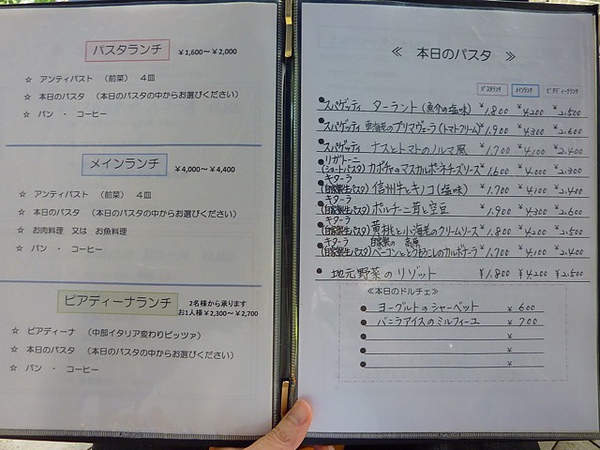 パスタランチ ￥1,600～￥2,000
☆ アンティパスト （前菜） 4皿
☆ 本日のパスタ （本日のパスタの中からお選びください）
☆ パン ・ コーヒー
メインランチ ￥4,000～￥4,400
☆ アンティパスト （前菜） 4皿
☆ 本日のパスタ （本日のパスタの中からお選びください）
☆ お肉料理 又は お魚料理
☆ パン ・ コーヒー
ピアディーナランチ 2名様から承ります
お1人様￥2,300～￥2,700
☆ ピアディーナ （中部イタリア変わりピッツァ）
☆ 本日のパスタ （本日のパスタの中からお選びください）
☆ パン ・ コーヒー
≪ 本日のパスタ ≫
パスタランチ メインランチ ピアディーナランチ
スパゲッティ ターラント(魚介の塩味) ￥1,800 ￥4,200 ￥2,500
スパゲッティ 海老のプリマヴェーラ(トマトクリーム) ￥1,900 ￥4,300 ￥2,600
スパゲッティ ナスとトマトのノルマ風 ￥1,700 ￥4,100 ￥2,400
リガトーニ
(ショートパスタ) カボチャのマスカルポーネチーズソース ￥1,600 ￥4,000 ￥2,300
キターラ
(自家製生パスタ) 信州牛とキノコ(塩味) ￥1,700 ￥4,100 ￥2,400
キターラ
(自家製生パスタ) ポルチーニ茸と空豆 ￥1,900 ￥4,300 ￥2,600
キターラ
(自家製生パスタ) 黄桃と小海老のクリームソース ￥1,800 ￥4,200 ￥2,500
キターラ 自家製の
(自家製生パスタ) ベーコンととうもろこしのカルボナーラ ￥1,700 ￥4,100 ￥2,400
地元野菜のリゾット ￥1,800 ￥4,200 ￥2,500
≪本日のドルチェ≫
ヨーグルトのシャーベット ￥600
バニラアイスのミルフィーユ ￥700
￥
￥
￥